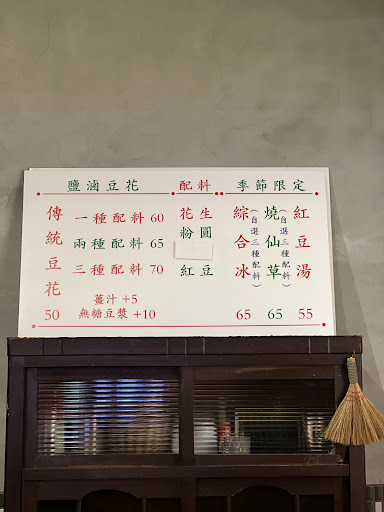 鹽滷豆花
傳統豆花
50
一種配料 60
兩種配料 65
三種配料 70
薑汁 +5
無糖豆漿 +10
配料
花生
粉圓
紅豆
季節限定
紅豆湯
55
燒仙草
(自選三種配料)
65
綜合冰
(自選三種配料)
65